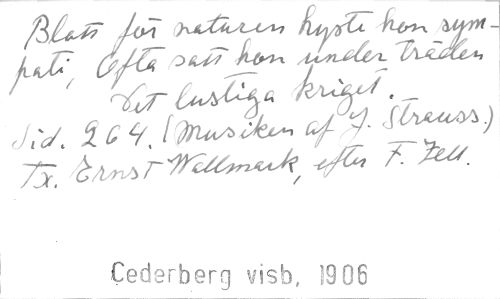 Blott för naturen hyste hon sym-
pati, Ofta satt hon under träden
Det lustiga kriget.
Sid. 264. (Musiken af J. Strauss.)
Tx. Ernst Wallmark, efter F. Zell.
Cederberg visb, 1906